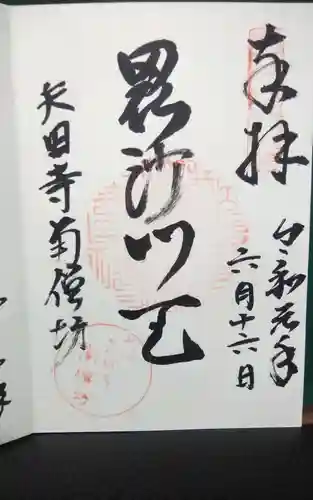 奉拝
令和元年
六月十六日
毘沙門天
矢田寺南僧坊